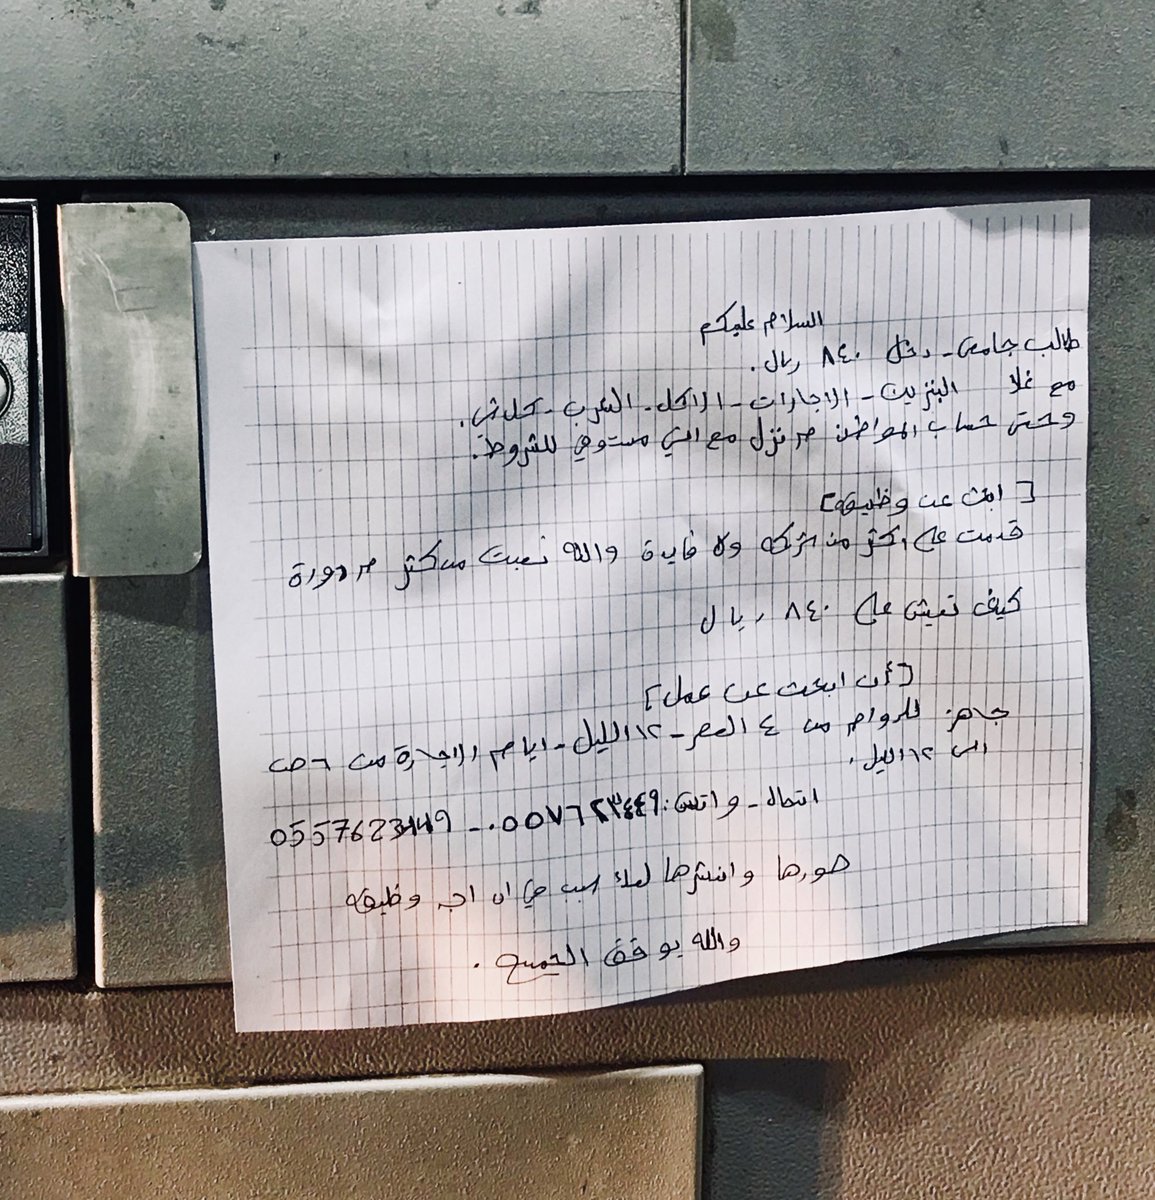 السلام عليكم
طالب جامعي - دخل ٨٤٠ ريال.
مع غلا البنزين - الاجارات - الاكل - الشرب - كلش.
وحتى حساب المواطن م نزل مع اني مستوفي للشروط.
[ابحث عن وظيفه]
قدمت على اكثر من شركه ولا فايدة والله تعبت من كثر م ادور
كيف نعيش على ٨٤٠ ريال
[أن ابحث عن عمل]
جاهز للدوام من ٤ العصر - ١٢ الليل - ايام الاجازة من ٦ ص
الى ١٢ الليل.
اتصال - واتس: ٠٥٥٧٦٢٣٤٤٩ - 0557623449
صورها وانشرها لعلك سبب في ان اجد وظيفه
والله يوفق الجميع.